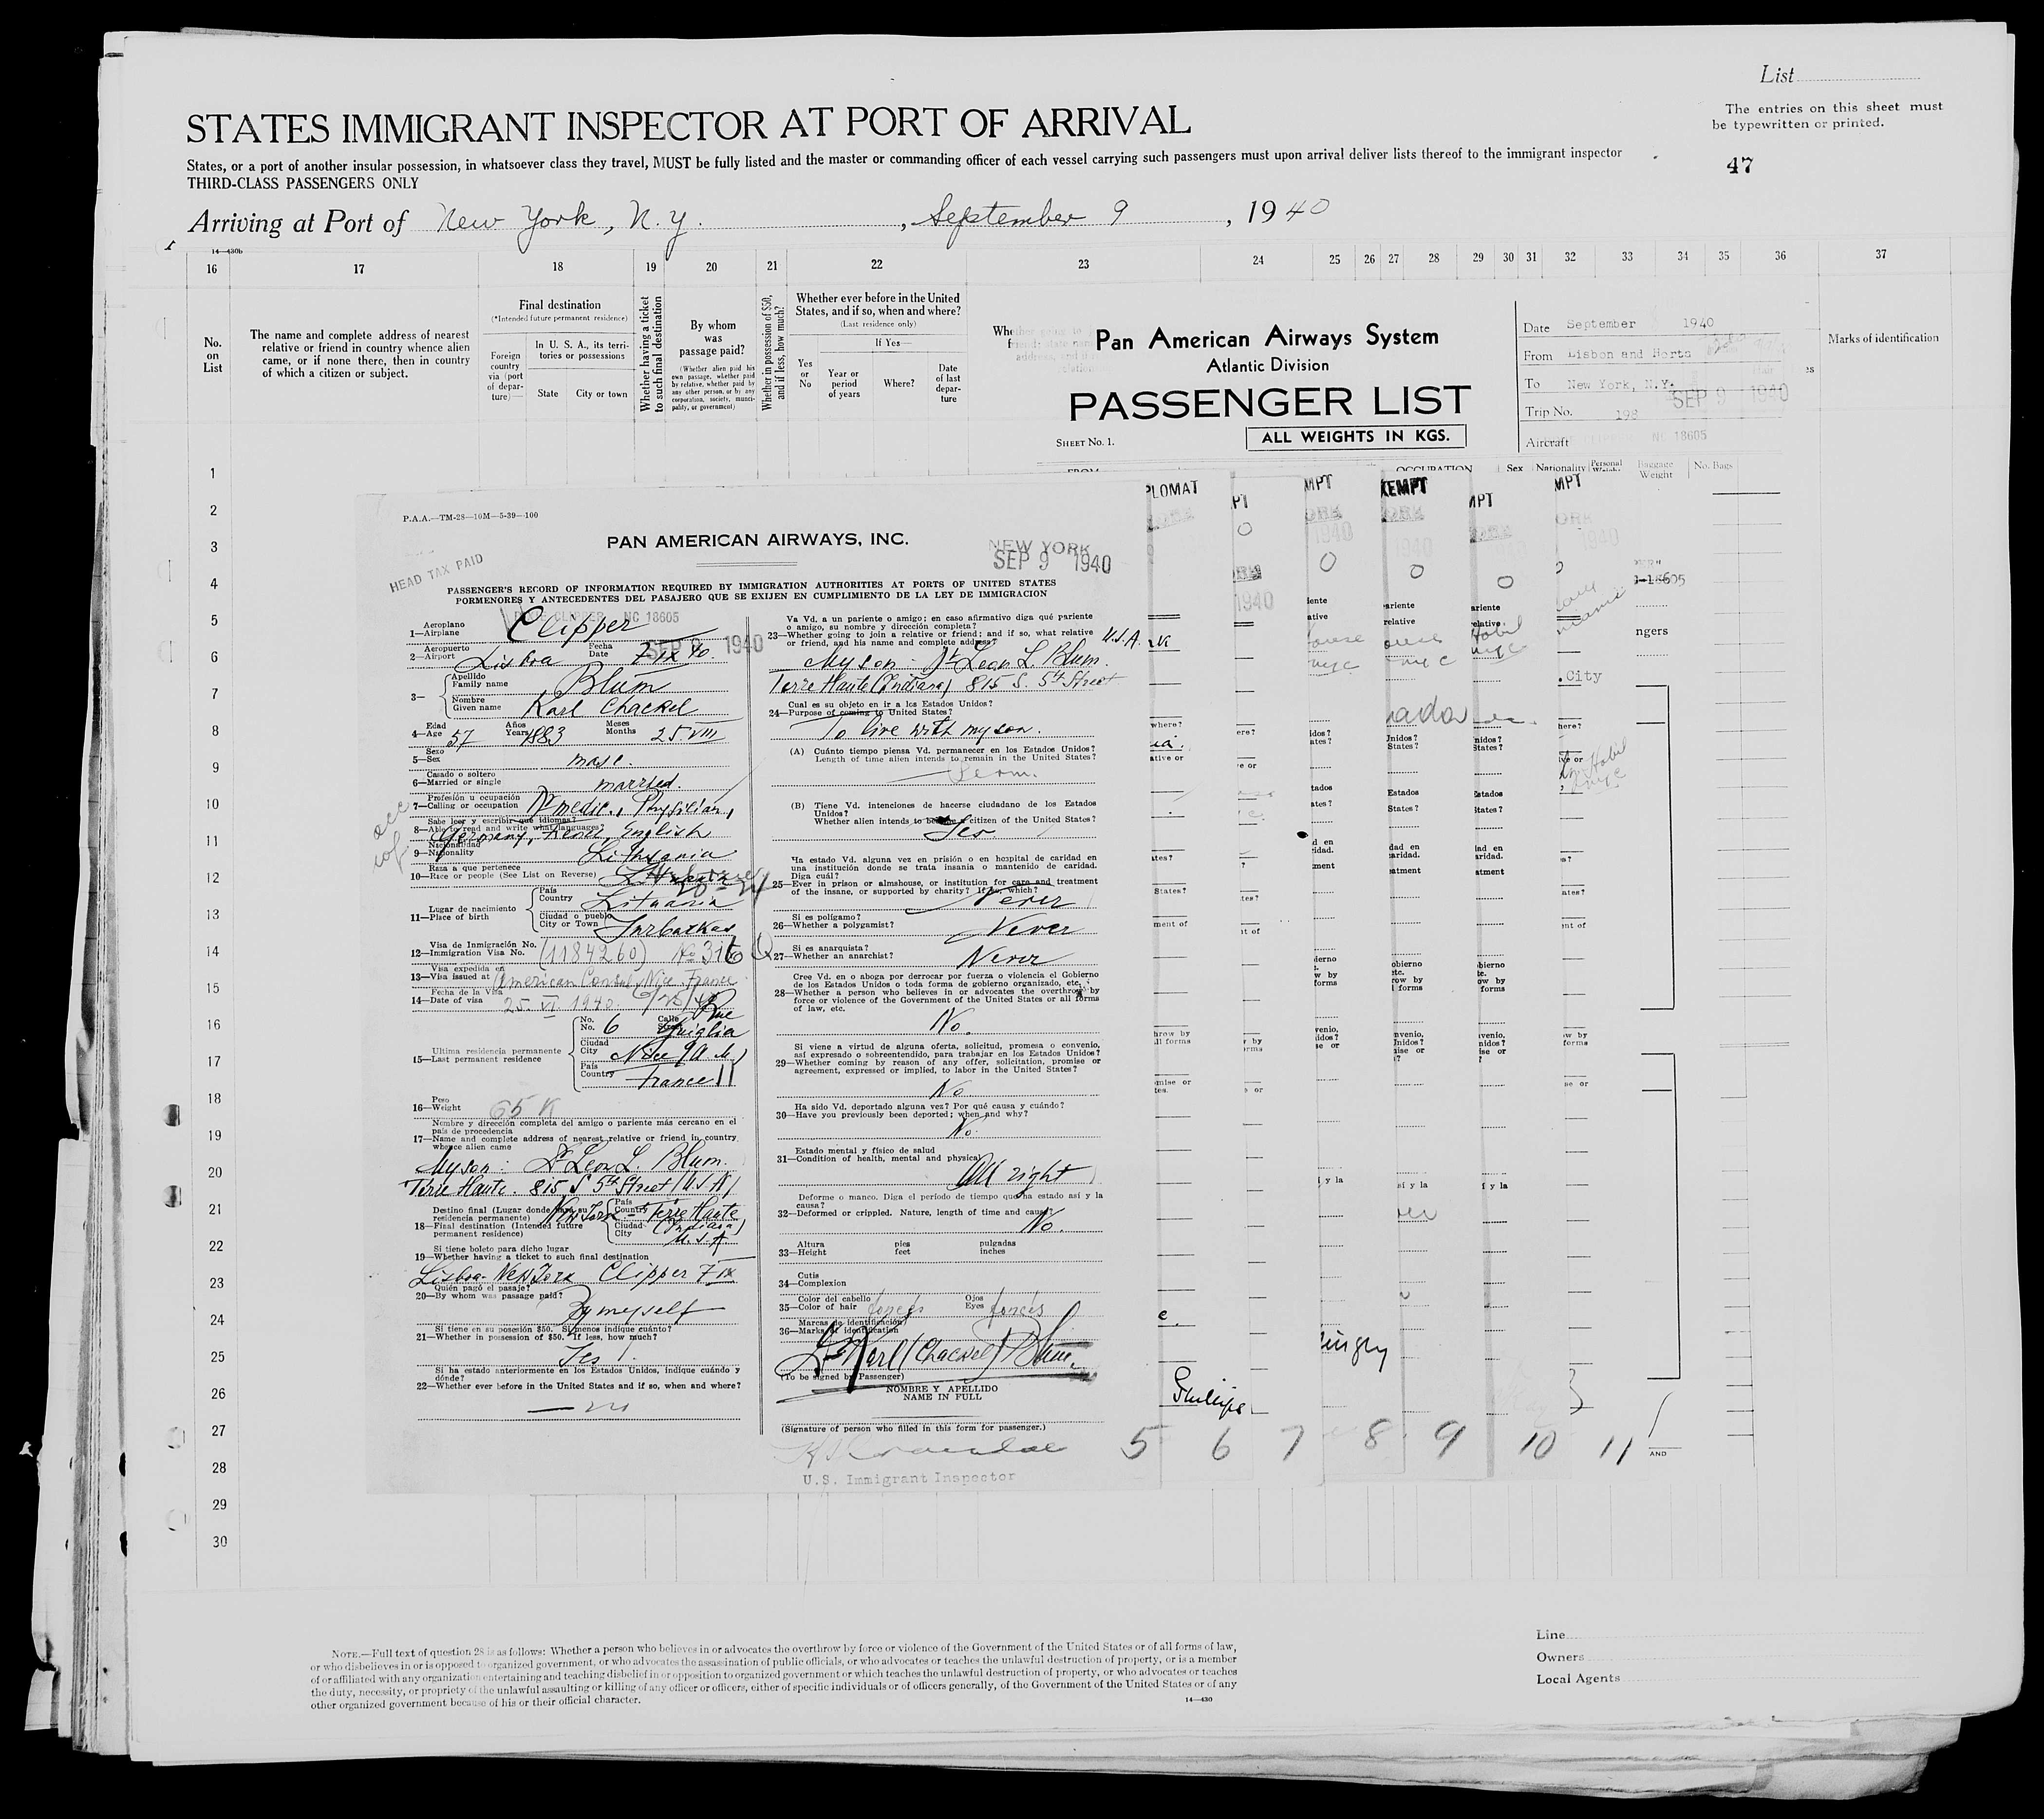 List
The entries on this sheet must
be typewritten or printed.
STATES IMMIGRANT INSPECTOR AT PORT OF ARRIVAL
States, or a port of another insular possession, in whatsoever class they travel, MUST be fully listed and the master or commanding officer of each vessel carrying such passengers must upon arrival deliver lists thereof to the immigrant inspector
THIRD-CLASS PASSENGERS ONLY
47
Arriving at Port of New York, N.Y., September 9, 1940
14—430b
16 17 18 19 20 21 22 23 24 25 26 27 28 29 30 31 32 33 34 35 36 37
No. on List
The name and complete address of nearest
relative or friend in country whence alien
came, or if none there, then in country
of which a citizen or subject.
Final destination
(*Intended future permanent residence)
Foreign country via (port of departure)—
In U. S. A., its territories or possessions
State
City or town
Whether having a ticket to such final destination
By whom was passage paid?
(Whether alien paid his own passage, whether paid by relative, whether paid by any other person, or by any corporation, society, municipality, or government)
Whether in possession of $50, and if less, how much?
Whether ever before in the United
States, and if so, when and where?
(Last residence only)
If Yes—
Yes or No
Year or period of years
Where?
Date of last departure
Marks of identification
Pan American Airways System
Atlantic Division
PASSENGER LIST
SHEET No. 1.
ALL WEIGHTS IN KGS.
Date September 1940
From Lisbon and Horta
To New York, N.Y.
SEP 9 1940
Trip No. 198
Aircraft CLIPPER NC 18605
OCCUPATION Sex Nationality Personal Weight Baggage Weight No. Bags
1
2
3
4
5
6
7
8
9
10
11
12
13
14
15
16
17
18
19
20
21
22
23
24
25
26
27
28
29
30
P.A.A.—TM-28—10M—5-39—100
PAN AMERICAN AIRWAYS, INC.
HEAD TAX PAID
NEW YORK
SEP 9 1940
PASSENGER'S RECORD OF INFORMATION REQUIRED BY IMMIGRATION AUTHORITIES AT PORTS OF UNITED STATES
PORMENORES Y ANTECEDENTES DEL PASAJERO QUE SE EXIJEN EN CUMPLIMIENTO DE LA LEY DE IMMIGRACION
CLIPPER NC 18605
Aeroplano
1—Airplane Clipper
SEP 9 1940
Aeropuerto Fecha
2—Airport Lisboa Date 7 IX 40
Apellido
Family name Blum
3—
Nombre
Given name Karl Chackel
Edad Años Meses
4—Age 57 Years 1883 Months 25 VIII
Sexo
5—Sex masc.
Casado o soltero
6—Married or single married.
Profesión u ocupación
7—Calling or occupation Dr medic., Physician,
Sabe leer y escribir que idiomas?
8—Able to read and write what languages?
Germany, French, English
Nacionalidad
9—Nationality Lituania
Raza a que pertenece
10—Race or people (See List on Reverse)
País
Country Lituania
Lugar de nacimiento
11—Place of birth
Ciudad o pueblo
City or Town Jurbarkas
Visa de Inmigración No.
12—Immigration Visa No. (1184260) No 316 Q
Visa expedida en
13—Visa issued at American Consul, Nice, France
Fecha de la Visa
14—Date of visa 25. VI 1940.
No. Calle
No. 6 Street Rue
Guiglia
Ultima residencia permanente
15—Last permanent residence
Ciudad
City Nice (A M)
País
Country France
Peso
16—Weight 65 K
Nombre y dirección completa del amigo o pariente más cercano en el
país de procedencia
17—Name and complete address of nearest relative or friend in country
whence alien came
My son: Dr Leon L. Blum.
Terre Haute. 815 S 5th Street (U.S.A)
Destino final (Lugar donde fijará su
residencia permanente)
18—Final destination (Intended future
permanent residence)
País
Country
Ciudad
City
New York – Terre Haute
(Indiana)
U.S.A.
Si tiene boleto para dicho lugar
19—Whether having a ticket to such final destination
Lisboa - New York Clipper 7 IX
Quién pagó el pasaje?
20—By whom was passage paid?
By myself
Si tiene en su posesión $50. Si menos indique cuánto?
21—Whether in possession of $50. If less, how much?
Yes
Si ha estado anteriormente en los Estados Unidos, indique cuándo y
dónde?
22—Whether ever before in the United States and if so, when and where?
— no
Va Vd. a un pariente o amigo; en caso afirmativo diga qué pariente
o amigo, su nombre y dirección completa?
23—Whether going to join a relative or friend; and if so, what relative
or friend, and his name and complete address?
U.S.A.
My son Dr Leon L. Blum.
Terre Haute (Indiana) 815 S. 5th Street
Cual es su objeto en ir a los Estados Unidos?
24—Purpose of coming to United States?
To live with my son.
(A) Cuánto tiempo piensa Vd. permanecer en los Estados Unidos?
Length of time alien intends to remain in the United States?
Perm.
(B) Tiene Vd. intenciones de hacerse ciudadano de los Estados
Unidos?
Whether alien intends to become a citizen of the United States?
Yes
Ha estado Vd. alguna vez en prisión o en hospital de caridad en
una institución donde se trata insania o mantenido de caridad.
Diga cuál?
25—Ever in prison or almshouse, or institution for care and treatment
of the insane, or supported by charity? If so, which?
Never
Si es polígamo?
26—Whether a polygamist? Never
Si es anarquista?
27—Whether an anarchist? Never
Cree Vd. en o aboga por derrocar por fuerza o violencia el Gobierno
de los Estados Unidos o toda forma de gobierno organizado, etc.
28—Whether a person who believes in or advocates the overthrow by
force or violence of the Government of the United States or all forms
of law, etc.
No.
Si viene a virtud de alguna oferta, solicitud, promesa o convenio,
así expresado o sobreentendido, para trabajar en los Estados Unidos?
29—Whether coming by reason of any offer, solicitation, promise or
agreement, expressed or implied, to labor in the United States?
No
Ha sido Vd. deportado alguna vez? Por qué causa y cuándo?
30—Have you previously been deported; when and why?
No.
Estado mental y físico de salud
31—Condition of health, mental and physical
All right
Deforme o manco. Diga el período de tiempo que ha estado así y la
causa?
32—Deformed or crippled. Nature, length of time and cause
No.
Altura pies pulgadas
33—Height feet inches
Cutis
34—Complexion
Color del cabello Ojos
35—Color of hair foncés Eyes foncés
Marcas de identificación
36—Marks of identification
Dr Karl (Chackel) Blum.
(To be signed by Passenger)
NOMBRE Y APELLIDO
NAME IN FULL
(Signature of person who filled in this form for passenger.)
U.S. Immigrant Inspector
5 6 7 8 9 10 11
NOTE.—Full text of question 28 is as follows: Whether a person who believes in or advocates the overthrow by force or violence of the Government of the United States or of all forms of law,
or who disbelieves in or is opposed to organized government, or who advocates the assassination of public officials, or who advocates or teaches the unlawful destruction of property, or is a member
of or affiliated with any organization entertaining and teaching disbelief in or opposition to organized government or which teaches the unlawful destruction of property, or who advocates or teaches
the duty, necessity, or propriety of the unlawful assaulting or killing of any officer or officers, either of specific individuals or of officers generally, of the Government of the United States or of any
other organized government because of his or their official character.
14—430
Line
Owners
Local Agents